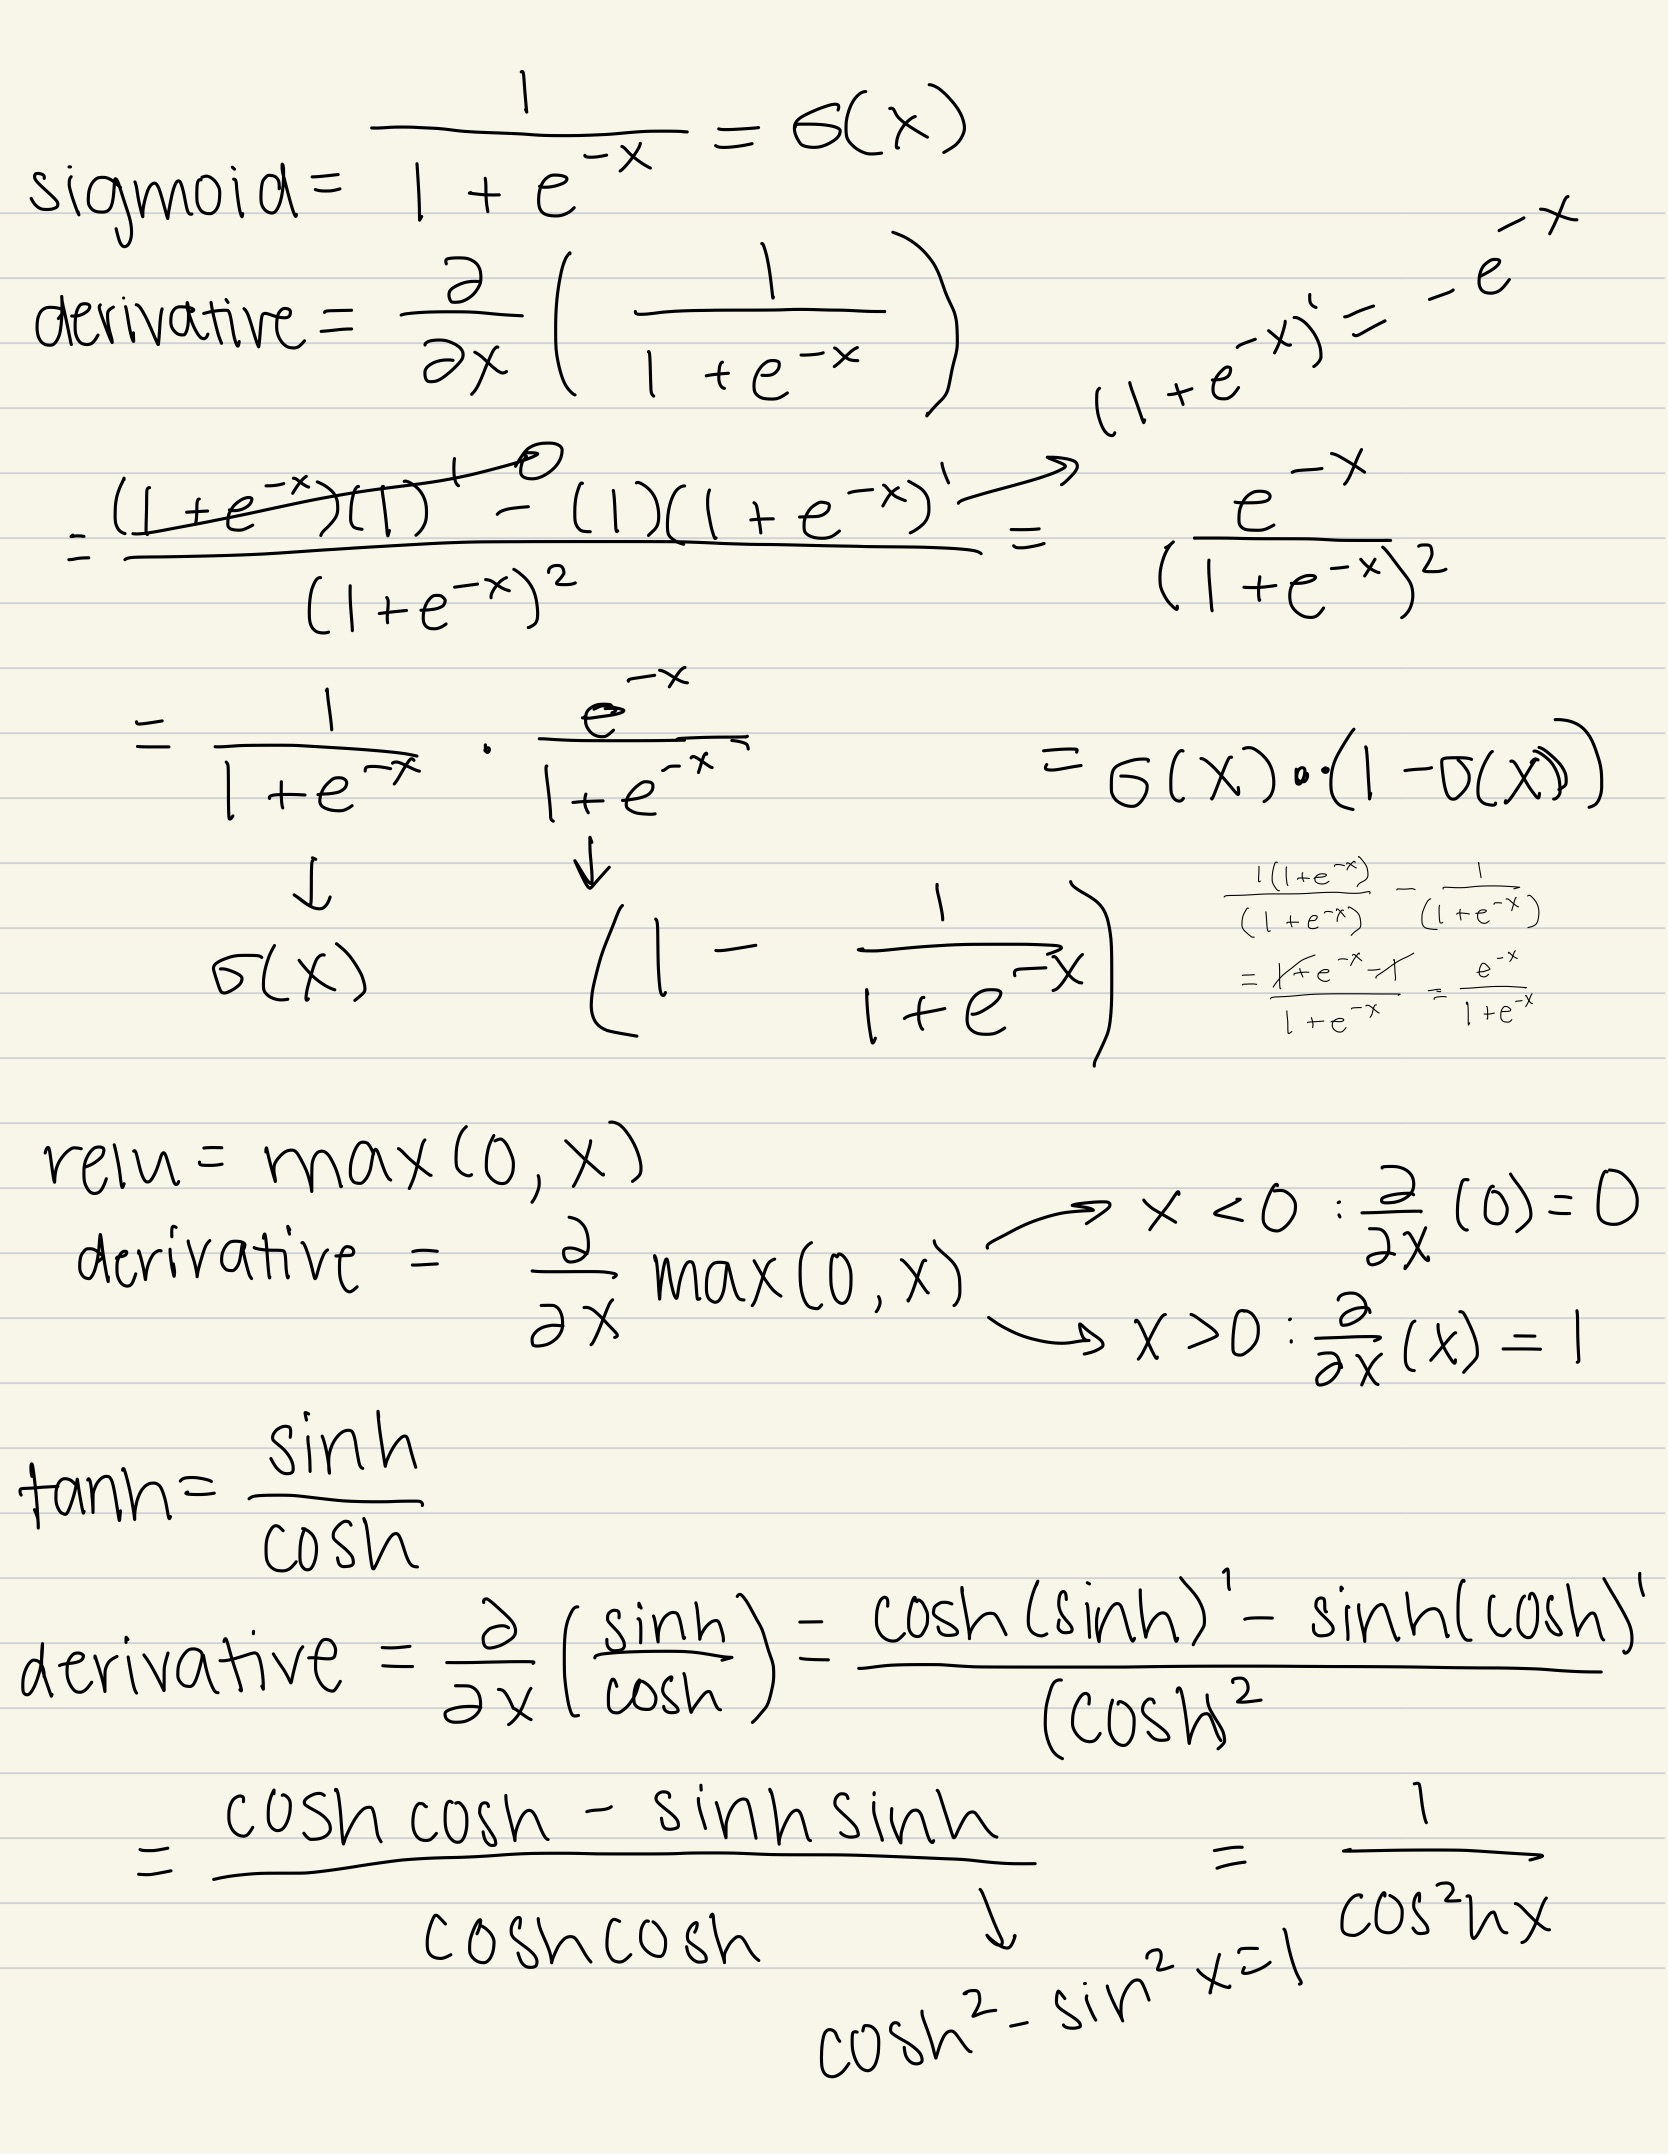 sigmoid = 1 / (1 + e^(-x)) = σ(x)
derivative = ∂/∂x (1 / (1 + e^(-x)))
(1 + e^(-x))' = -e^(-x)
= ((1 + e^(-x))(1)' - (1)(1 + e^(-x))') / (1 + e^(-x))^2 = e^(-x) / (1 + e^(-x))^2
0
= 1 / (1 + e^(-x)) · e^(-x) / (1 + e^(-x)) = σ(x) · (1 - σ(x))
↓ ↓
σ(x) (1 - 1 / (1 + e^(-x)))
1(1 + e^(-x)) / (1 + e^(-x)) - 1 / (1 + e^(-x))
= (1 + e^(-x) - 1) / (1 + e^(-x)) = e^(-x) / (1 + e^(-x))
relu = max(0, x)
derivative = ∂/∂x max(0, x)
→ x < 0 : ∂/∂x (0) = 0
→ x > 0 : ∂/∂x (x) = 1
tanh = sinh / cosh
derivative = ∂/∂x (sinh / cosh) = (cosh(sinh)' - sinh(cosh)') / (cosh)^2
= (cosh cosh - sinh sinh) / (cosh cosh) = 1 / cos²hx
↓
cosh² - sin²x = 1